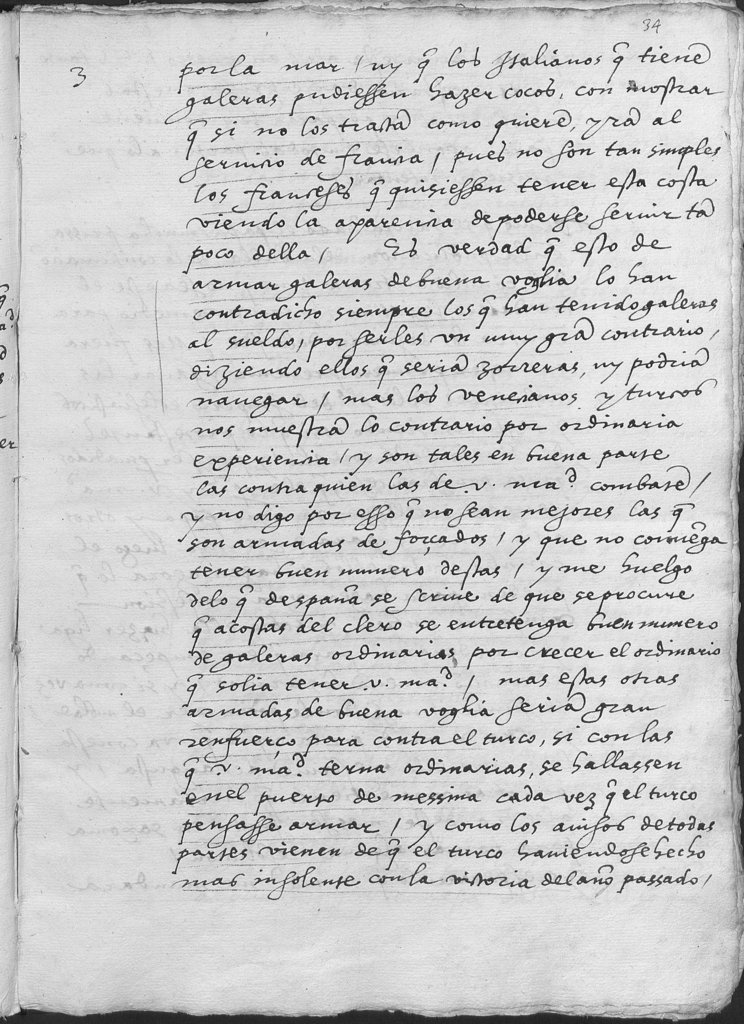 34
3
por la mar / ny q̃ los Italianos q̃ tienẽ
galeras pudiessen hazer cocos, con mostrar
q̃ si no los tractã como quierẽ, yrã al
seruicio de francia / pues no son tan simples
los franceses q̃ quisiessen tener esta costa
viendo la aparencia de poderse seruir tã
poco della / Es verdad q̃ esto de
armar galeras de buena voglia lo han
contradicho siempre los q̃ han tenido galeras
al sueldo, por serles vn muy grã contrario,
diziendo ellos q̃ seriã zorreras, ny podriã
nauegar / mas los venecianos y turcos
nos muestrã lo contrario por ordinaria
experiencia / y son tales en buena parte
las contra quien las de .v. mad. combatẽ /
y no digo por esso q̃ no sean mejores las q̃
son armadas de forçados / y que no conuẽga
tener buen numero destas / y me huelgo
delo q̃ despaña se scriue de que se procure
q̃ acostas del clero se entretenga buen numero
de galeras ordinarias por crecer el ordinario
q̃ solia tener .v. mad. / mas estas otras
armadas de buena voglia seriã gran
renfuerço para contra el turco, si con las
q̃ .v. mad. terna ordinarias, se hallassen
enel puerto de messina cada vez q̃ el turco
pensasse armar / y como los auisos de todas
partes vienen de q̃ el turco hauiendose hecho
mas insolente con la victoria del año passado /